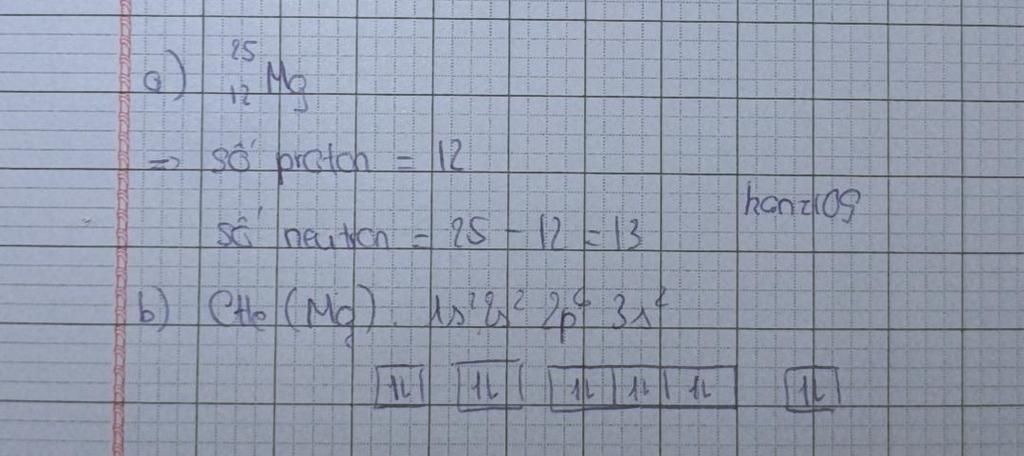 a) ²⁵₁₂Mg
=> số proton = 12
số neutron = 25 - 12 = 13
hanz105
b) CHe (Mg): 1s² 2s² 2p⁶ 3s²
↑↓ ↑↓ ↑↓ ↑↓ ↑↓ ↑↓